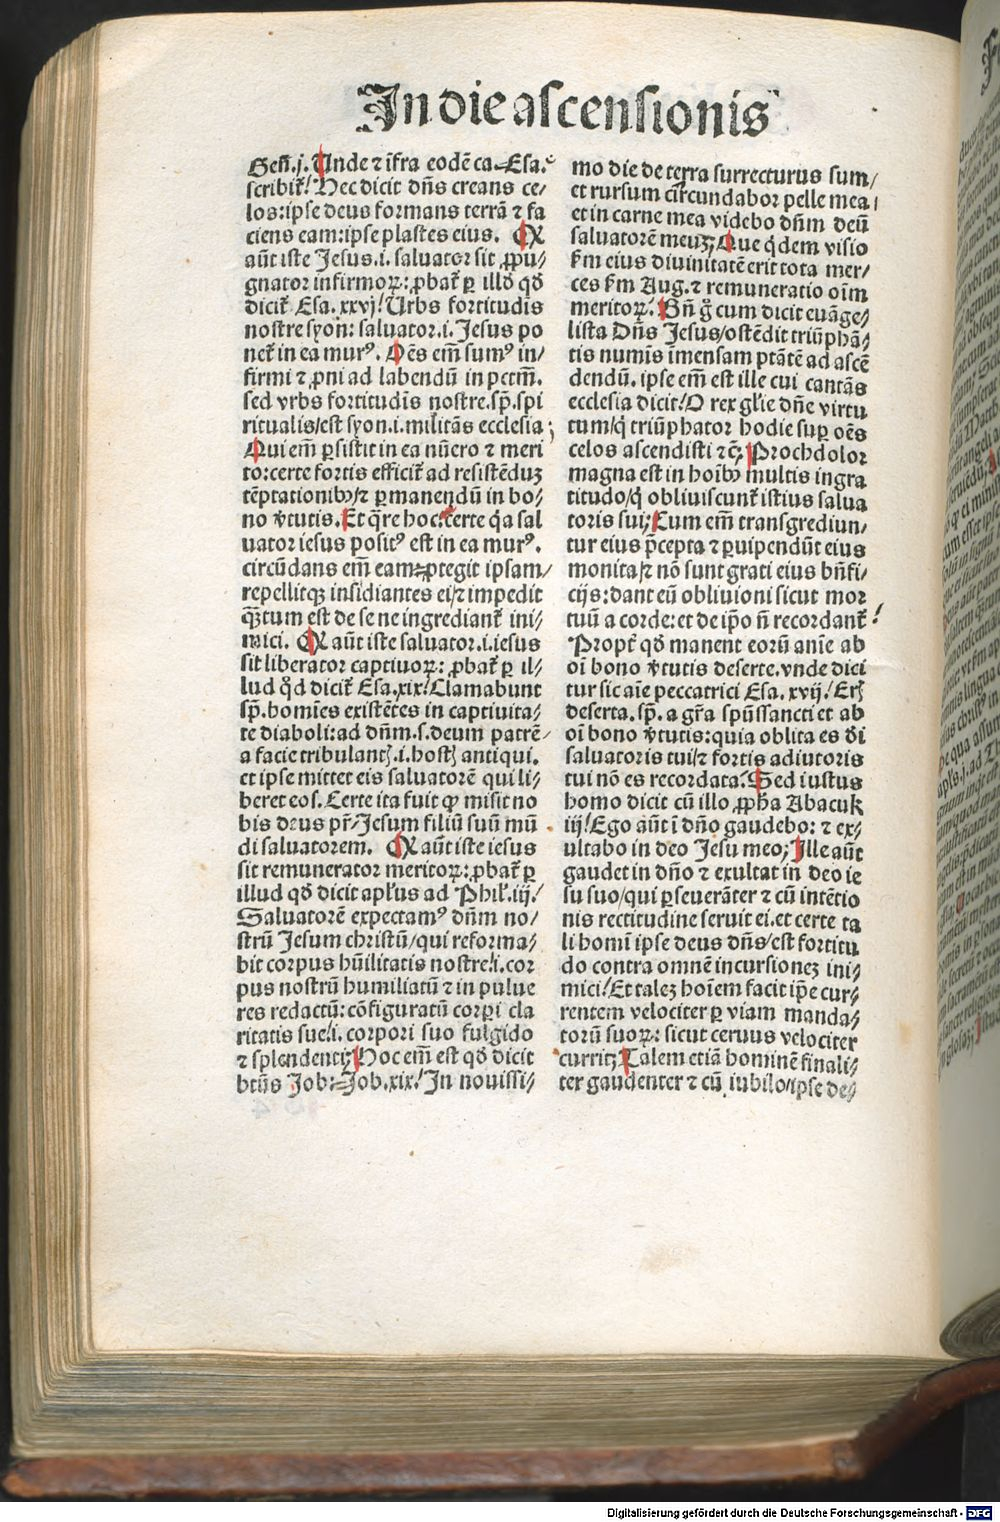 In die ascensionis
Geñ.j. Unde ⁊ ĩfra eodẽ ca. Esa.
scribit᷑/ Hec dicit dñs creans ce/
los: ipse deus formans terrã ⁊ fa
ciens eam: ipse plastes eius. Qꝛ
aũt iste Jesus .i. saluator sit ꝓpu/
gnator infirmoꝝ: ꝓbat᷑ ꝑ illđ qđ
dicit᷑ Esa. xxvj/ Urbs fortitudis
nostre syon: saluator .i. Jesus po
net᷑ in ea murꝰ. Oẽs em̃ sumꝰ in/
firmi ⁊ ꝓni ad labendũ in pctm̃.
sed vrbs fortitudis nostre .sp̃. spi
ritualis/ est syon .i. militãs ecclesia;
Qui em̃ ꝑsistit in ea nũero ⁊ meri
to: certe fortis efficit᷑ ad resistẽduꝫ
tẽptationibꝰ/ ⁊ ꝑmanendũ in bo/
no v̓tutis. Et q̃re hoc: certe q̓a sal
uator iesus positꝰ est in ea murꝰ.
circũdans em̃ eam: ꝓtegit ipsam/
repellitqꝫ insidiantes ei/ ⁊ impedit
q̃ꝫtum est de se ne ingrediant᷑ ini/
mici. Qꝛ aũt iste saluator .i. iesus
sit liberator captiuoꝝ: ꝓbat᷑ ꝑ il/
lud qđ dicit᷑ Esa. xix/ Clamabunt
sp̃. homĩes existẽtes in captiuita/
te diaboli: ad dñm .s. deum patrẽ/
a facie tribulantꝭ .i. hostꝭ antiqui.
et ipse mittet eis saluatorẽ qui li/
beret eos. Certe ita fuit ꝙ misit no
bis deus pr̃/ Jesum filiũ suũ mũ
di saluatorem. Qꝛ aũt iste iesus
sit remunerator meritoꝝ: ꝓbat᷑ ꝑ
illud qđ dicit apl̓us ad Phil̓. iij/
Saluatorẽ expectamꝰ dñm no/
strũ Jesum christũ/ qui reforma/
bit corpus hũilitatis nostre/ .i. cor
pus nostrũ humiliatũ ⁊ in pulue
res redactũ: cõfiguratũ corꝑi cla
ritatis sue/ .i. corpori suo fulgido
⁊ splendenti; Hoc em̃ est qđ dicit
btũs Job: Job. xix/ In nouissi/
mo die de terra surrecturus sum/
et rursum circundabor pelle mea/
et in carne mea videbo dñm deũ
saluatorẽ meuꝫ; Que q̓dem visio
ẜm eius diuinitatẽ erit tota mer/
ces ẜm Aug. ⁊ remuneratio oĩm
meritoꝝ. Bñ g̃ cum dicit euãge/
lista Dñs Jesus/ ostẽdit triũphã/
tis numĩs ĩmensam ptãtẽ ad ascẽ
dendũ. ipse em̃ est ille cui cantãs
ecclesia dicit/ O rex gl̓ie dñe virtu
tum/ q̓ triũphator hodie suꝑ oẽs
celos ascendisti ⁊c̃; Proch dolor
magna est in hoĩbꝰ multis ingra
titudo/ q̓ obliuiscunt᷑ istius salua
toris sui; Cum em̃ transgrediun/
tur eius p̃cepta ⁊ ꝑuipendũt eius
monita/ ⁊ nõ sunt grati eius bñfi/
cijs: dant eũ obliuioni sicut mor
tuũ a corde: et de ip̃o ñ recordant᷑/
Propt̓ qđ manent eorũ anĩe ab
oĩ bono v̓tutis deserte. vnde dici
tur sic aĩe peccatrici Esa. xvij/ Erꝭ
deserta. sp̃. a gr̃a sp̃ussancti et ab
oĩ bono v̓tutis: quia oblita es đi
saluatoris tui/ ⁊ fortis adiutoris
tui nõ es recordata. Sed iustus
homo dicit cũ illo ꝓph̃a Abacuk
iij/ Ego aũt ĩ dño gaudebo: ⁊ ex/
ultabo in deo Jesu meo; Ille aũt
gaudet in dño ⁊ exultat in deo ie
su suo/ qui ꝑseuerãter ⁊ cũ intẽtio
nis rectitudine seruit ei. et certe ta
li homĩ ipse deus dñs/ est fortitu
do contra omnẽ incursionẽꝫ ini/
mici/ Et taleꝫ hoĩem facit ip̃e cur/
rentem velociter ꝑ viam manda/
torũ suoꝝ: sicut ceruus velociter
currit; Talem etiã hominẽ finali/
ter gaudenter ⁊ cũ iubilo/ ipse de/
Digitalisierung gefördert durch die Deutsche Forschungsgemeinschaft - DFG